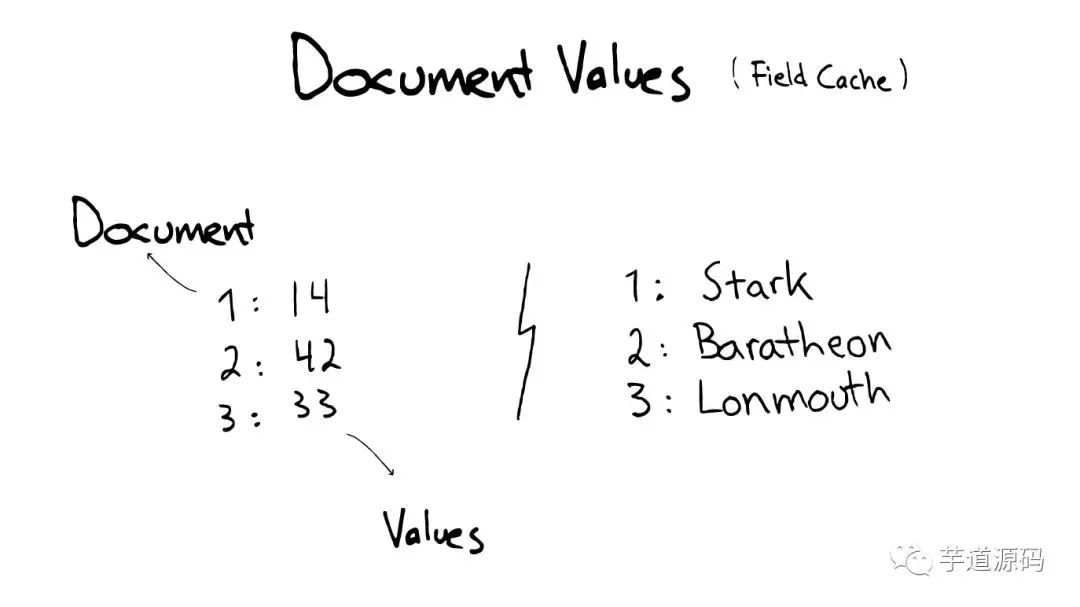 Document Values (Field Cache)
Document
1: 14
2: 42
3: 33
Values
1: Stark
2: Baratheon
3: Lonmouth
芋道源码